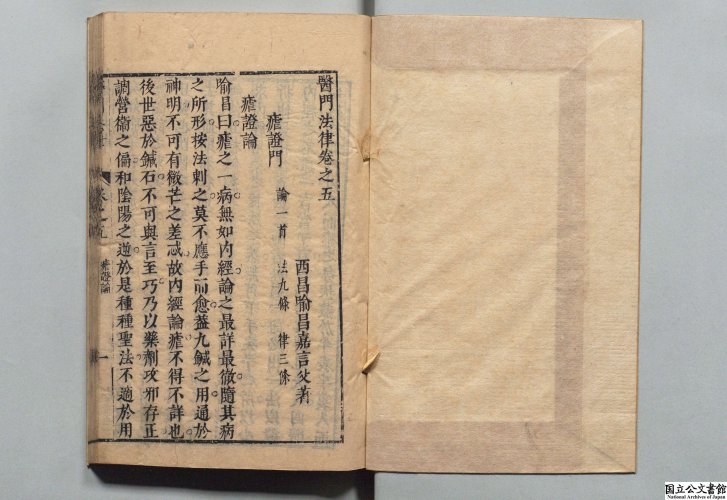 醫門法律卷之五
西昌喻昌嘉言父著
瘧證門 論一首 法九條 律三條
瘧證論
喻昌曰瘧之一病無如內經論之最詳最徹隨其病
之所形按法刺之莫不應手而愈蓋九鍼之用通於
神明不可有微芒之差忒故內經論瘧不得不詳也
後世惡於鍼石不可與言至巧乃以藥劑攻邪存正
調營衞之偏和陰陽之逆於是種種聖法不適於用
卷之五 瘧證論 一
国立公文書館
National Archives of Japan